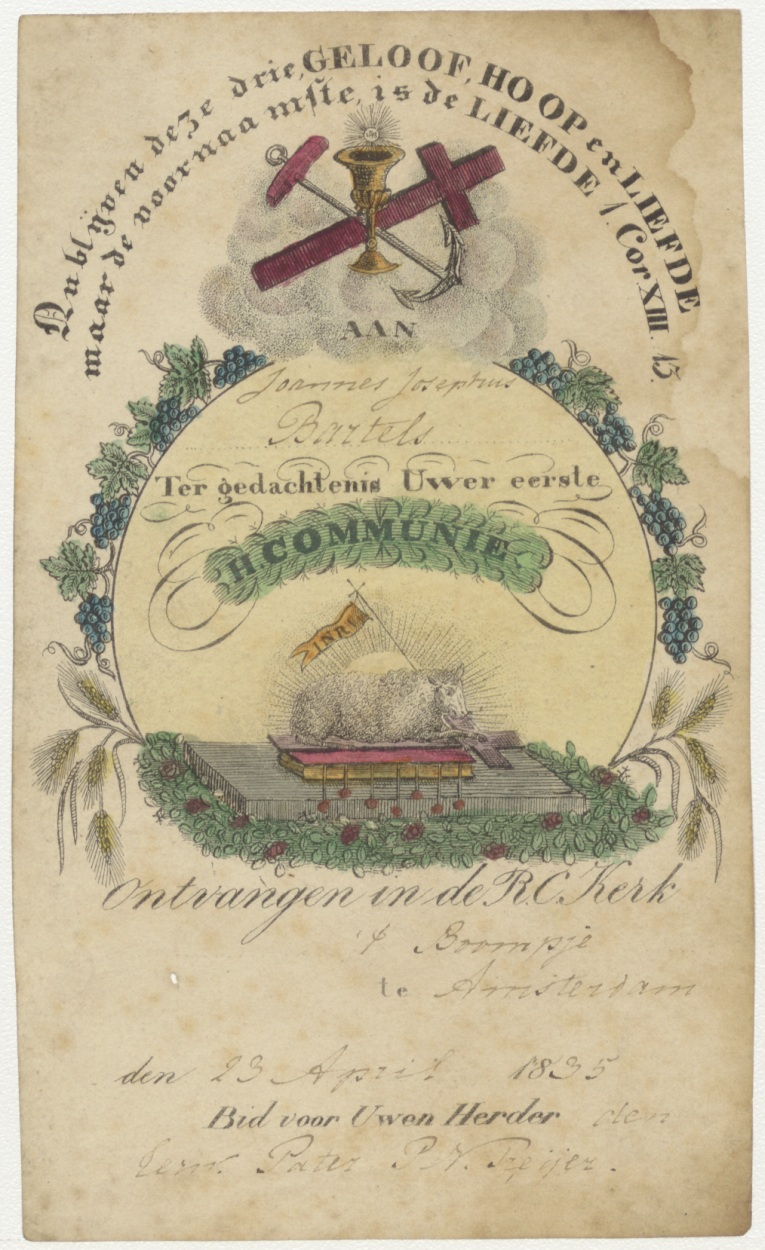 Nu blyven deze drie, GELOOF, HOOP en LIEFDE
maar de voornaamste, is de LIEFDE 1. Cor XIII. 13.
AAN
Joannes Josephus
Bartels
Ter gedachtenis Uwer eerste
H. COMMUNIE
INRI
Ontvangen in de R.C. Kerk
't Boompje
te Amsterdam
den 23 April 1835
Bid voor Uwen Herder den
Eerw. Pater P.N.